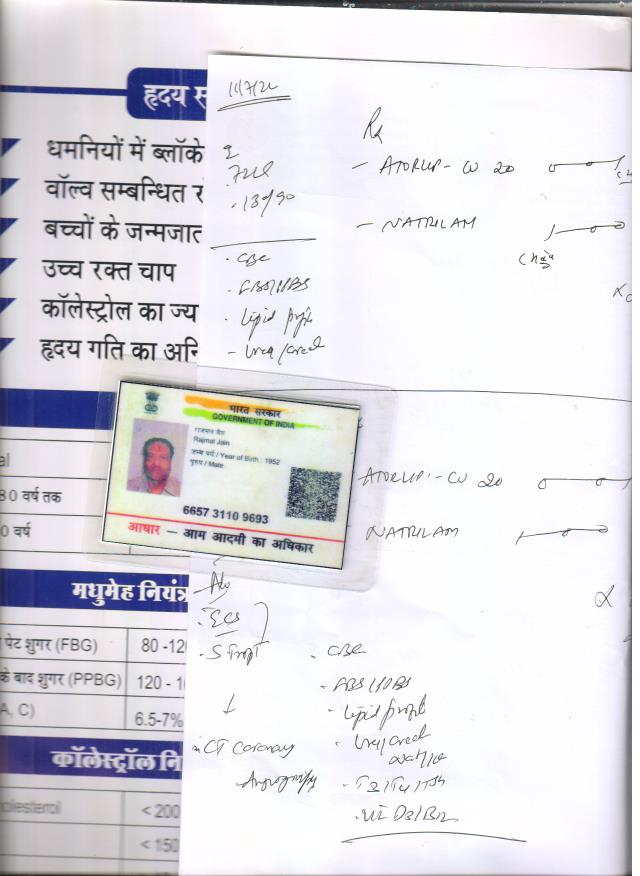 हृदय
धमनियों में ब्लॉके
वॉल्व सम्बन्धित
बच्चों के जन्मजात
उच्च रक्त चाप
कॉलेस्ट्रोल का ज्य
हृदय गति का अनि
Rx
- ATORLIP-CV 20
130/90
- NATRILAM
- CBC
- FBS/PPBS
- Lipid profile
- Urea/creat
भारत सरकार
GOVERNMENT OF INDIA
राजमल जैन
Rajmal Jain
जन्म वर्ष / Year of Birth : 1952
पुरुष / Male
6657 3110 9693
आधार – आम आदमी का अधिकार
ATORLIP-CV 20
NATRILAM
al
80 वर्ष तक
0 वर्ष
मधुमेह नियंत्र
पेट शुगर (FBG) 80 -12
के बाद शुगर (PPBG) 120 - 1
A, C) 6.5-7%
कॉलेस्ट्रॉल नि
olesterol < 200
< 150
Adv
- ECG
- CBC
- FBS/PPBS
- Lipid profile
CT Coronary
Angiography
- Urea/creat
- T3/T4/TSH
- VIT D3/B12